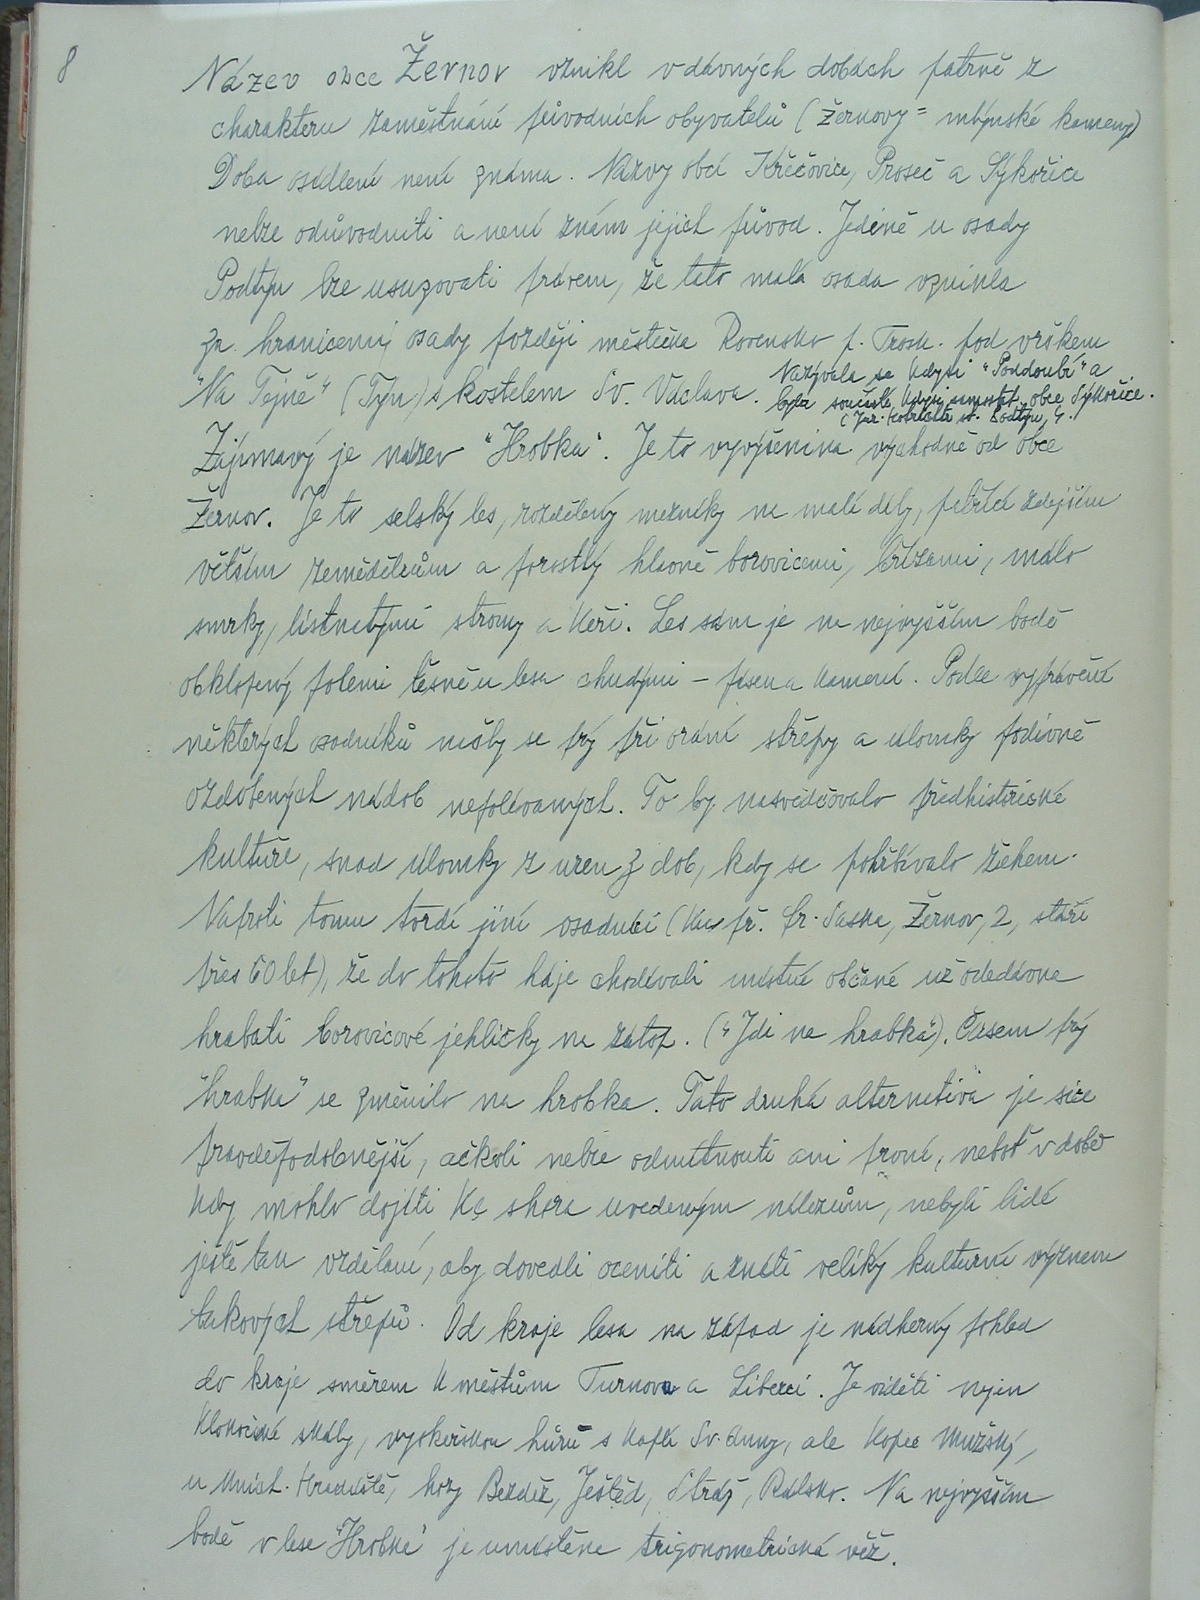 8
Název obce Žernov vznikl v dávných dobách patrně z
charakteru zaměstnání původních obyvatelů (žernovy = mlýnské kameny)
Doba osídlení není známa. Názvy obcí Křečovice, Proseč a Sýkořice
nelze odůvodniti a není znám jejich původ. Jedině u osady
Podtýn lze usuzovati právem, že tato malá osada vznikla
za hranicemi osady později městečka Rovensko p. Trosk. pod vrškem
"Na Tejně" (Týn) s kostelem Sv. Václava. Nazývala se kdysi "Poddoubí" a
byla součástí kdysi samostat. obce Sýkořice.
Podtýn 4.
Zajímavý je název "Hrobka". Je to vyvýšenina východně od obce
Žernov. Je to selský les, rozdělený mezníky na malé díly, patřící zdejším
větším zemědělcům a porostlý hlavně borovicemi, břízami, málo
smrky, listnatými stromy a keři. Les sám je na nejvyšším bodě
obklopený polemi těsně u lesa chudými – písen a kamení. Podle vyprávění
některých osadníků našly se prý při orání střepy a úlomky podivně
ozdobených nádob nepolévaných. To by nasvědčovalo předhistorické
kultuře, snad úlomky z uren z dob, kdy se pohřbívalo žehem.
Naproti tomu tvrdí jiní osadníci (ku př. Fr. Saska, Žernov, 2, stáří
přes 60 let), že do tohoto háje chodívali místní občané už odedávna
hrabati borovicové jehličky na zátop. ("Jdi na hrabka"). Časem prý
"hrabka" se změnilo na hrobka. Tato druhá alternativa je sice
pravděpodobnější, ačkoli nelze odmítnouti ani první, neboť v době
kdy mohlo dojíti ke shora uvedeným nálezům, nebyli lidé
ještě tak vzdělaní, aby dovedli oceniti a znáti veliký kulturní význam
takových střepů. Od kraje lesa na západ je nádherný pohled
do kraje směrem k městům Turnova a Liberci. Je viděti nejen
Klokočské skály, vyskeřskou hůru s kaplí Sv. Anny, ale kopec Mužský,
u Mnich. Hradiště, hory Bezděz, Ještěd, Stráž, Ralsko. Na nejvyšším
bodě v lese "Hrobka" je umístěna trigonometrická věž.